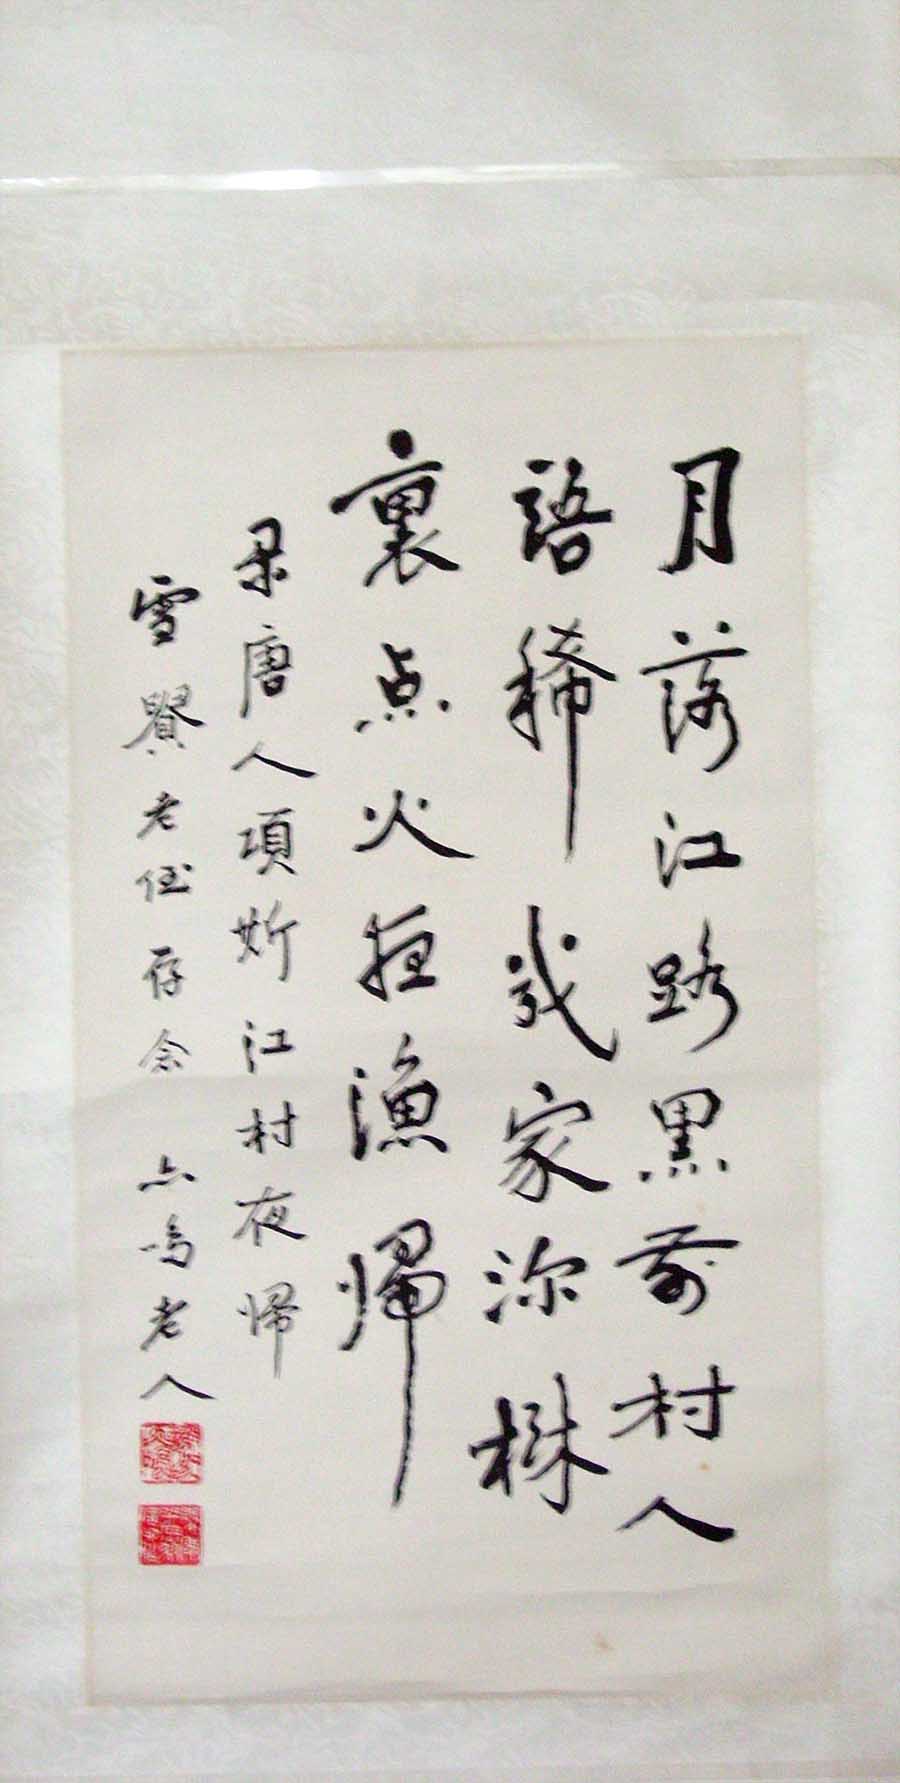 月落江路黑前村人
語稀幾家深樹
裏点火夜漁歸
录唐人項斯江村夜歸
雪賢老侄存念 鳴老人